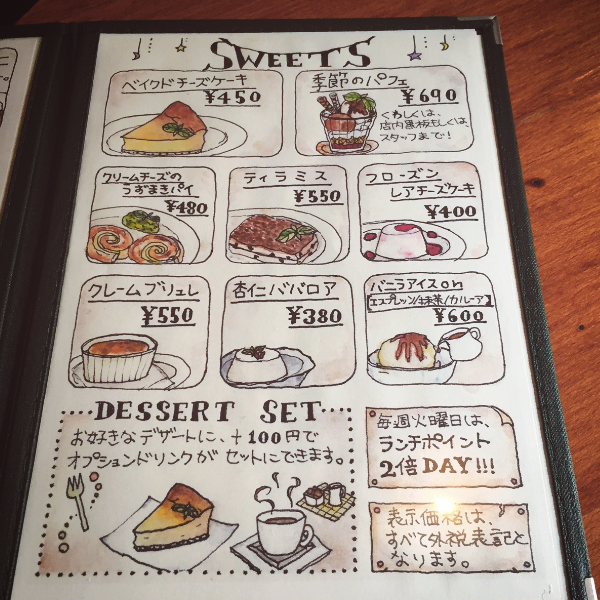 SWEETS
ベイクドチーズケーキ
¥450
季節のパフェ
¥690
くわしくは、
店内黒板もしくは、
スタッフまで!
クリームチーズの
うずまきパイ
¥480
ティラミス
¥550
フローズン
レアチーズケーキ
¥400
クレームブリュレ
¥550
杏仁ババロア
¥380
バニラアイスon
【エスプレッソ/抹茶/カルーア】
¥600
DESSERT SET
お好きなデザートに、+100円で
オプションドリンクが セットにできます。
毎週火曜日は、
ランチポイント
2倍DAY!!!
表示価格は、
すべて外税表記と
なります。